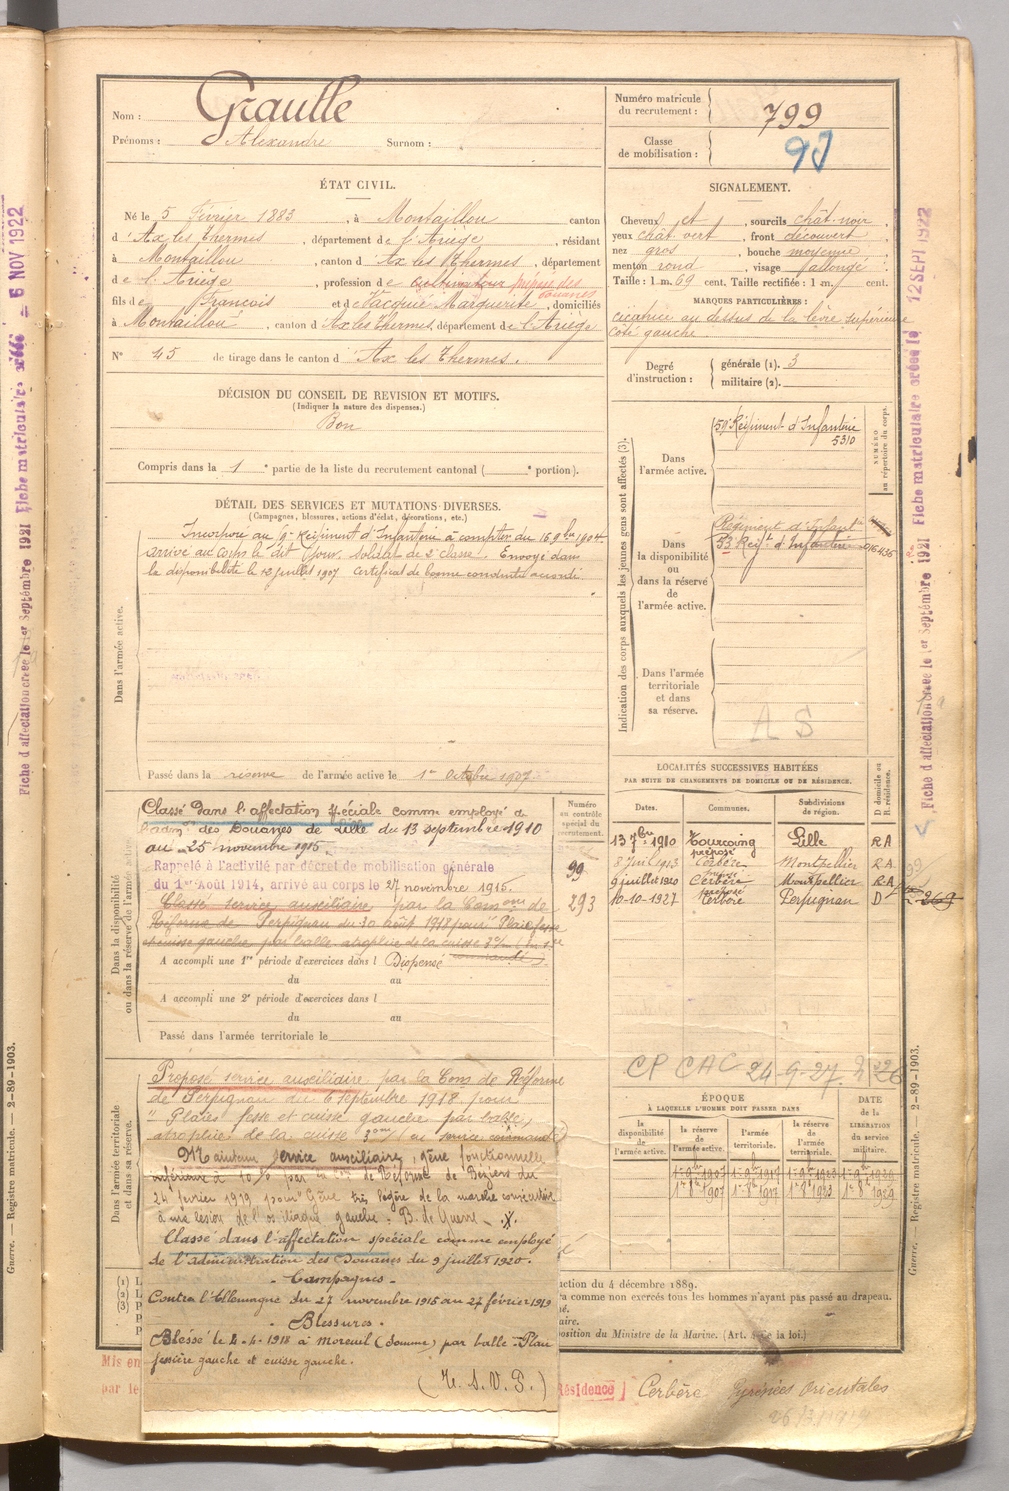 Nom : Graulle
Prénoms : Alexandre Surnom :
Numéro matricule du recrutement : 799
Classe de mobilisation :
ÉTAT CIVIL.
Né le 5 Février 1883, à Montaillou canton
d'Ax les Thermes, département de l'Ariège, résidant
à Montaillou, canton d'Ax les Thermes, département
de l'Ariège, profession de cultivateur préposé des douanes
fils de François et de Marguerite, domiciliés
à Montaillou, canton d'Ax les Thermes, département de l'Ariège
N° 45 de tirage dans le canton d'Ax les Thermes.
SIGNALEMENT.
Cheveux et, sourcils chât. noir,
yeux chât vert, front découvert,
nez gros, bouche moyenne,
menton rond, visage allongé
Taille : 1 m. 69 cent. Taille rectifiée : 1 m. cent.
MARQUES PARTICULIÈRES :
cicatrice au dessus de la lèvre supérieure
côté gauche
Degré d'instruction : générale (1). 3
militaire (2).
DÉCISION DU CONSEIL DE REVISION ET MOTIFS.
(Indiquer la nature des dispenses.)
Bon
Compris dans la 1e partie de la liste du recrutement cantonal ( e portion).
DÉTAIL DES SERVICES ET MUTATIONS DIVERSES.
(Campagnes, blessures, actions d'éclat, décorations, etc.)
Dans l'armée active.
Incorporé au Régiment d'Infanterie à compter du 16 9bre 1904
arrivé au corps le dit jour, soldat de 2e classe. Envoyé dans
la disponibilité le 12 juillet 1907 Certificat de bonne conduite accordé
Passé dans la réserve de l'armée active le 1er Octobre 1907
Indication des corps auxquels les jeunes gens sont affectés (3).
NUMÉRO au répertoire du corps.
Dans l'armée active.
Régiment d'Infanterie
5310
Dans la disponibilité ou dans la réserve de l'armée active.
Régiment d'Infanterie
53 Régt d'Infanterie
Dans l'armée territoriale et dans sa réserve.
A S
Dans la disponibilité ou dans la réserve de l'armée active.
Numéro au contrôle spécial du recrutement.
Classé dans l'affectation spéciale comme employé de
l'admon des Douanes de Lille du 13 septembre 1910
au 25 novembre 1915.
Rappelé à l'activité par décret de mobilisation générale
du 1er Août 1914, arrivé au corps le 27 novembre 1915.
99
293
Classé service auxiliaire par la Comon de
Réforme de Perpignan du 30 août 1918 pour Plaie fesse
et cuisse gauche par balle atrophie de la cuisse
A accompli une 1re période d'exercices dans l Dispensé
du au
A accompli une 2e période d'exercices dans l
du au
Passé dans l'armée territoriale le
LOCALITÉS SUCCESSIVES HABITÉES
PAR SUITE DE CHANGEMENTS DE DOMICILE OU DE RÉSIDENCE.
Dates. Communes. Subdivisions de région. D domicile ou R résidence.
13 7bre 1910 Tourcoing préposé Lille RA
8 Juil 1913 Cerbère Montpellier RA
9 juillet 1920 Cerbère Montpellier RA
10-10-1927 Cerbère Perpignan D
269
CP CAC 24-9-27
ÉPOQUE
À LAQUELLE L'HOMME DOIT PASSER DANS
DATE de la LIBÉRATION du service militaire.
la disponibilité de l'armée active. la réserve de l'armée active. l'armée territoriale. la réserve de l'armée territoriale.
Dans l'armée territoriale et dans sa réserve.
Proposé service auxiliaire par la Com de Réforme
de Perpignan du 6 septembre 1918 pour
" Plaies fesse et cuisse gauche par balle,
atrophie de la cuisse
Maintenu service auxiliaire, gêne fonctionnelle
inférieure à 10% par la Con de Réforme de Béziers du
24 février 1919 pour Gêne très légère de la marche consécutive
à une lésion de l'os iliaque gauche. B. de Guerre
Classé dans l'affectation spéciale comme employé
de l'administration des Douanes du 9 juillet 1920.
- Campagnes -
Contre l'Allemagne du 27 novembre 1915 au 27 février 1919
- Blessures -
Blessé le 4-4-1918 à Moreuil (Somme) par balle - Plaie
fessière gauche et cuisse gauche.
(T. S. V. P.)
uction du 4 décembre 1889.
ra comme non exercés tous les hommes n'ayant pas passé au drapeau.
position du Ministre de la Marine. (Art. de la loi.)
Mis en
par le
Résidence ] Cerbère Pyrénées Orientales
Fiche d'affectation créée le 1er Septembre 1921
Fiche matriculaire créée le 6 NOV 1922
Fiche d'affectation créée le 1er Septembre 1921
Fiche matriculaire créée le 12 SEPT 1922
Guerre. — Registre matricule. — 2-89-1903.
Guerre. — Registre matricule. — 2-89-1903.